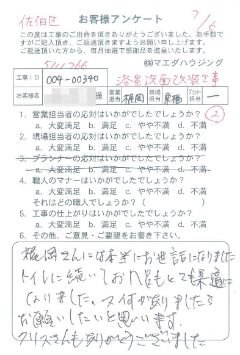 佐伯区
お客様アンケート
7/6
この度は工事のご用命を頂きありがとうございました。お手数で
すがご記入頂き、ご返送頂きますようお願い申し上げます。
ご返送頂いた方から、毎月抽選で感謝品をご進呈いたします。
㈱マエダハウジング
工事ID
004-00340
浴室洗面改装工事
お客様名
様
営業担当
現場担当
1. 営業担当者の応対はいかがでしたでしょうか?
a. 大変満足 b. 満足 c. やや不満 d. 不満
2. 現場担当者の応対はいかがでしたでしょうか?
a. 大変満足 b. 満足 c. やや不満 d. 不満
3. プランナーの応対はいかがでしたでしょうか?
a. 大変満足 b. 満足 c. やや不満 d. 不満
4. 職人のマナーはいかがでしたでしょうか?
a. 大変満足 b. 満足 c. やや不満 d. 不満
それはどの職人でしょうか?( )
5. 工事の仕上がりはいかがでしたでしょうか?
a. 大変満足 b. 満足 c. やや不満 d. 不満
6. その他、ご意見・ご要望をお書き下さい。
梶岡さんには本当にお世話になりました
トイレに続いしお風呂もとても快適に
なりました。又何か有りましたら
お願いしたいと思います。
クリスさんもありがとうございました